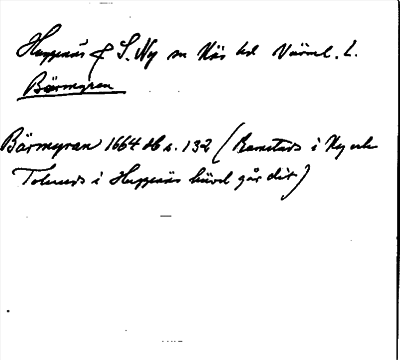 Huggenäs & S. Ny sn Näs hd Värml. l.
Bärmyran
Bärmyran 1664 db s. 132 (Ramstads i Ny och
Tolerud i Huggenäs hävd går dit)